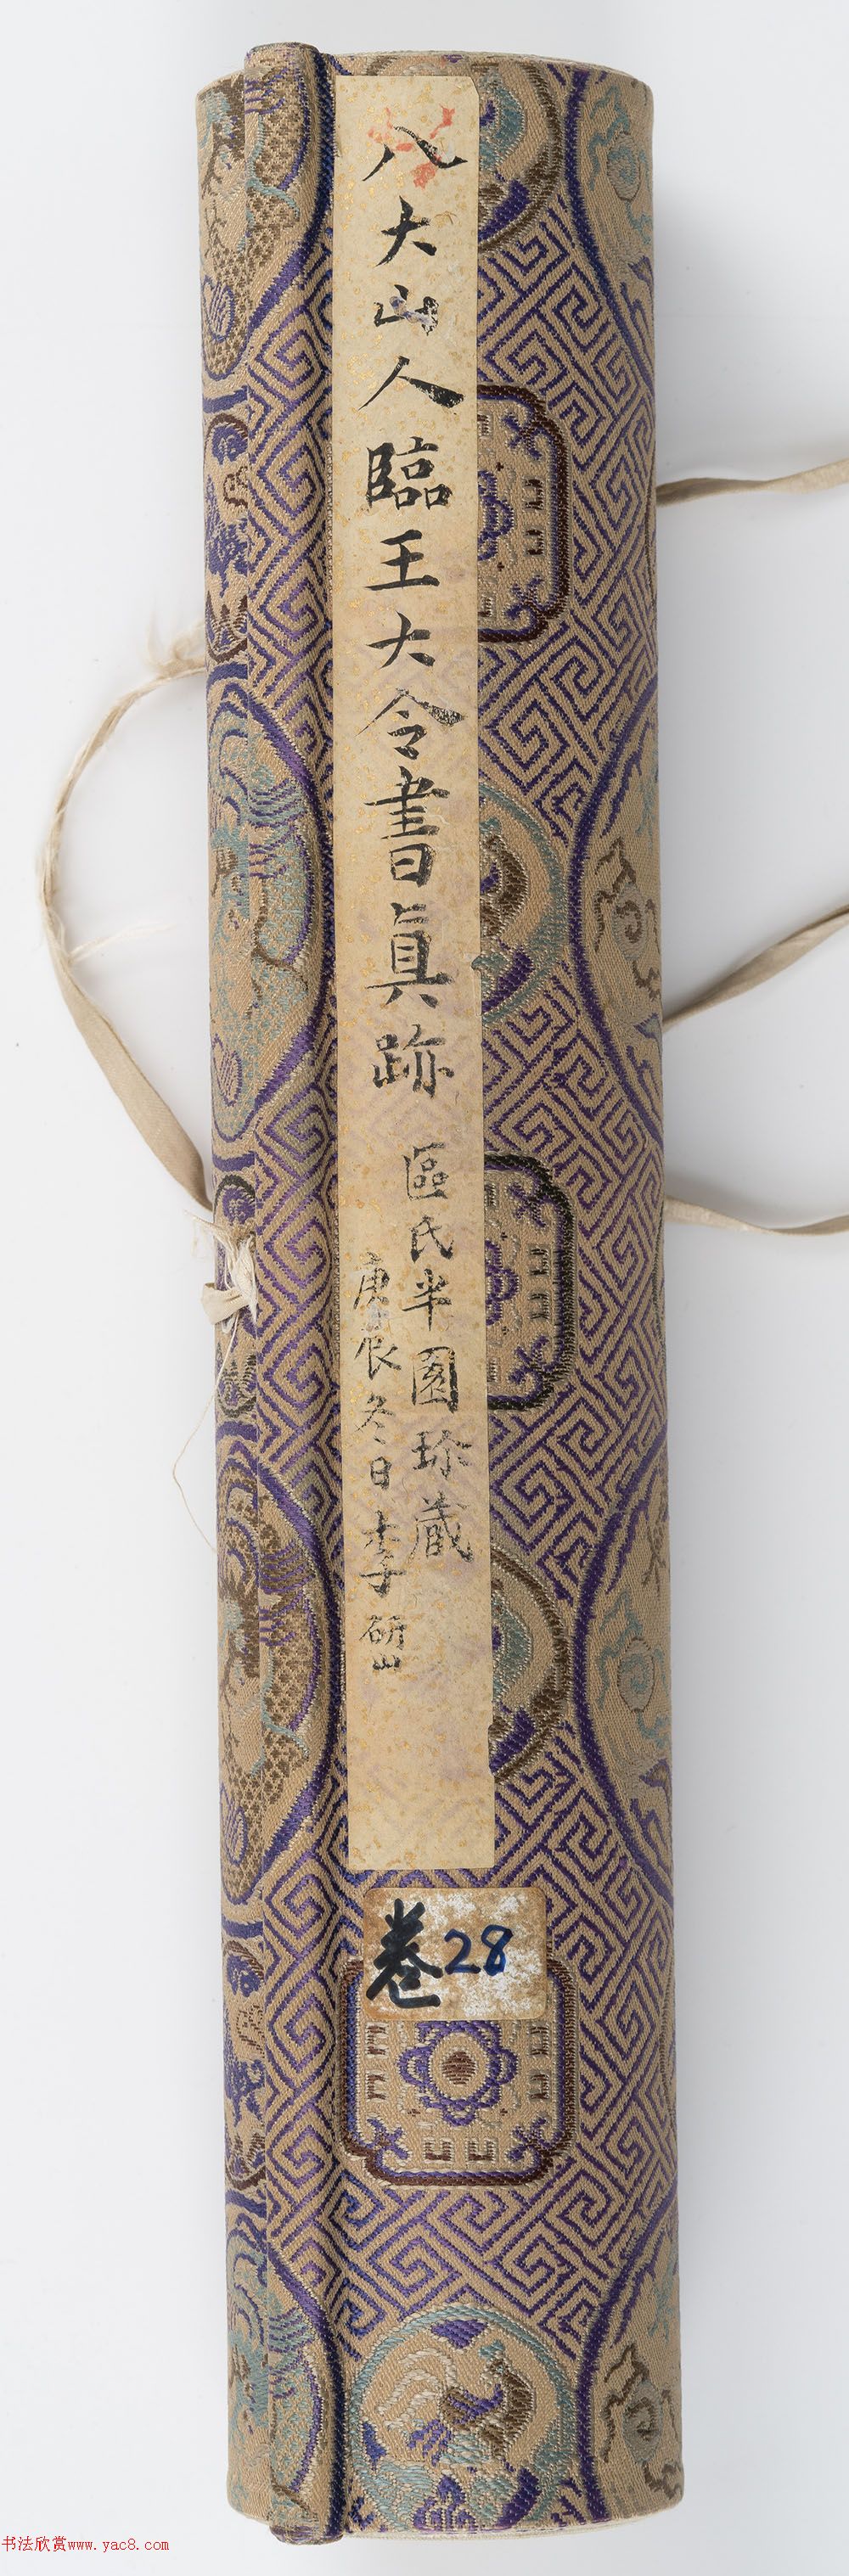 八大山人臨王大令書真跡
區氏半園珍藏
庚辰冬日李研山
卷28
书法欣赏www.yac8.com